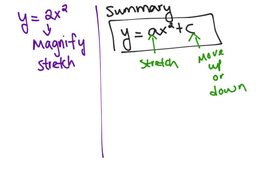 y = 2x²
Magnify
stretch
Summary
y = ax² + c
Stretch
Move
up
or
down